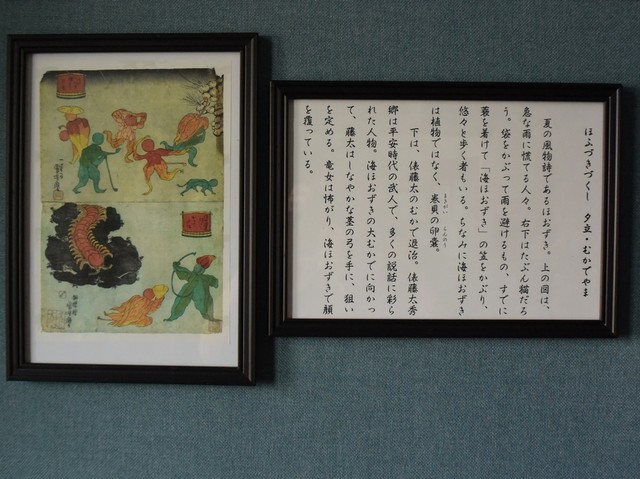 ほふづきづくし 夕立・むかでやま
夏の風物詩であるほおずき。上の図は、
急な雨に慌てる人々。右下はたぶん猫だろ
う。袋をかぶって雨を避けるもの、すでに
蓑を着けて「海ほおずき」の笠をかぶり、
悠々と歩く者もいる。ちなみに海ほおずき
は植物ではなく、巻貝の卵嚢。
下は、俵藤太のむかで退治。俵藤太秀
郷は平安時代の武人で、多くの説話に彩ら
れた人物。海ほおずきの大むかでに向かっ
て、藤太はしなやかな茎の弓を手に、狙い
を定める。竜女は怖がり、海ほおずきで顔
を覆っている。